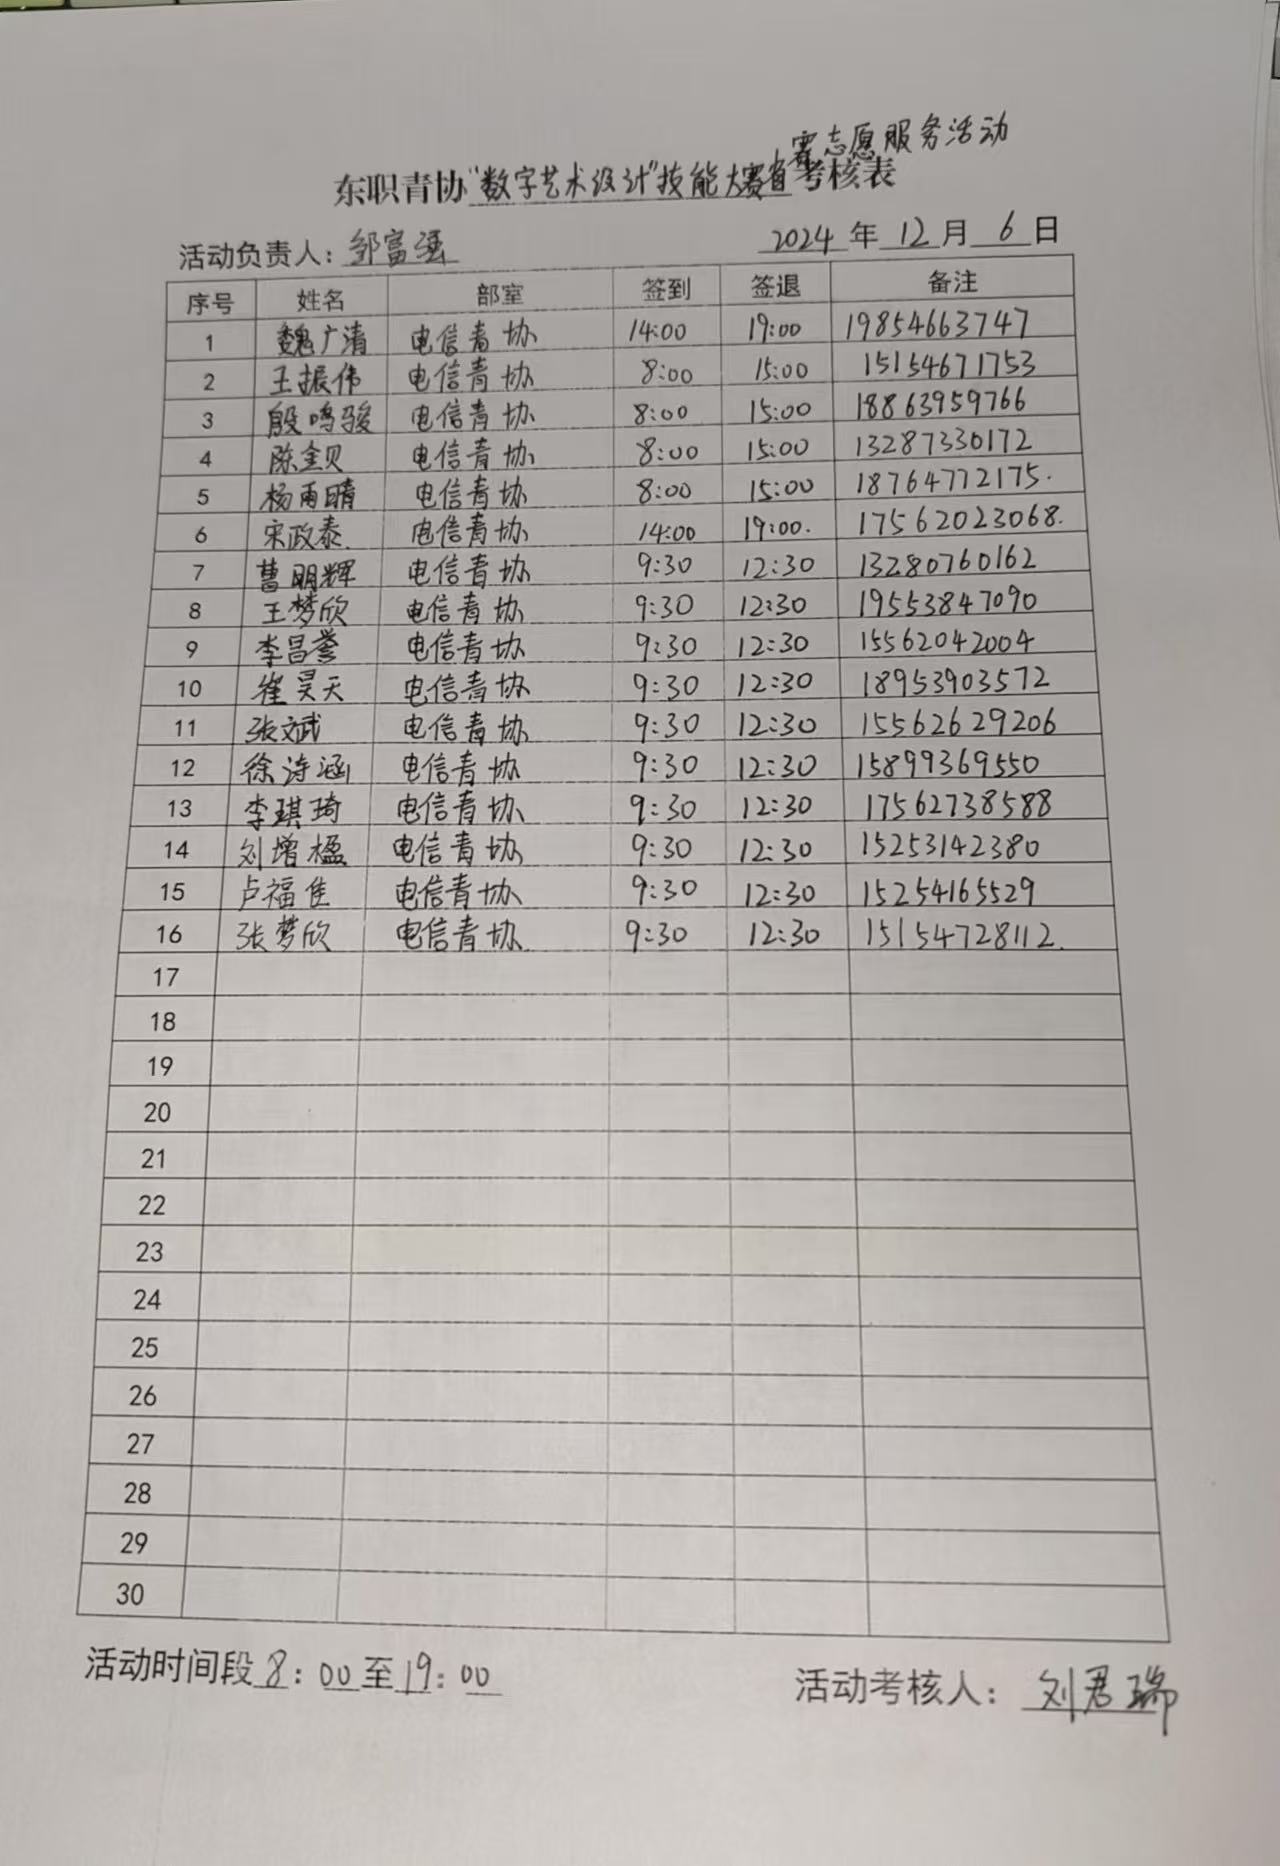 赛志愿服务活动
东职青协“数字艺术设计”技能大赛省考核表
活动负责人：邹富强 2024年12月6日
序号 姓名 部室 签到 签退 备注
1 魏广清 电信青协 14:00 19:00 19854663747
2 王振伟 电信青协 8:00 15:00 15154671753
3 殷鸣骏 电信青协 8:00 15:00 18863959766
4 陈金贝 电信青协 8:00 15:00 13287330172
5 杨雨晴 电信青协 8:00 15:00 18764772175.
6 宋政泰. 电信青协 14:00 19:00. 17562023068.
7 曹明辉 电信青协 9:30 12:30 13280760162
8 王梦欣 电信青协 9:30 12:30 19553847090
9 李昌誉 电信青协 9:30 12:30 15562042004
10 崔昊天 电信青协 9:30 12:30 18953903572
11 张斌 电信青协 9:30 12:30 15562629206
12 徐诗涵 电信青协 9:30 12:30 15899369550
13 李琪琦 电信青协 9:30 12:30 17562738588
14 刘增楹 电信青协 9:30 12:30 15253142380
15 卢福佳 电信青协 9:30 12:30 15254165529
16 张梦欣 电信青协 9:30 12:30 15154728112.
17
18
19
20
21
22
23
24
25
26
27
28
29
30
活动时间段8：00至19：00 活动考核人：刘君瑞